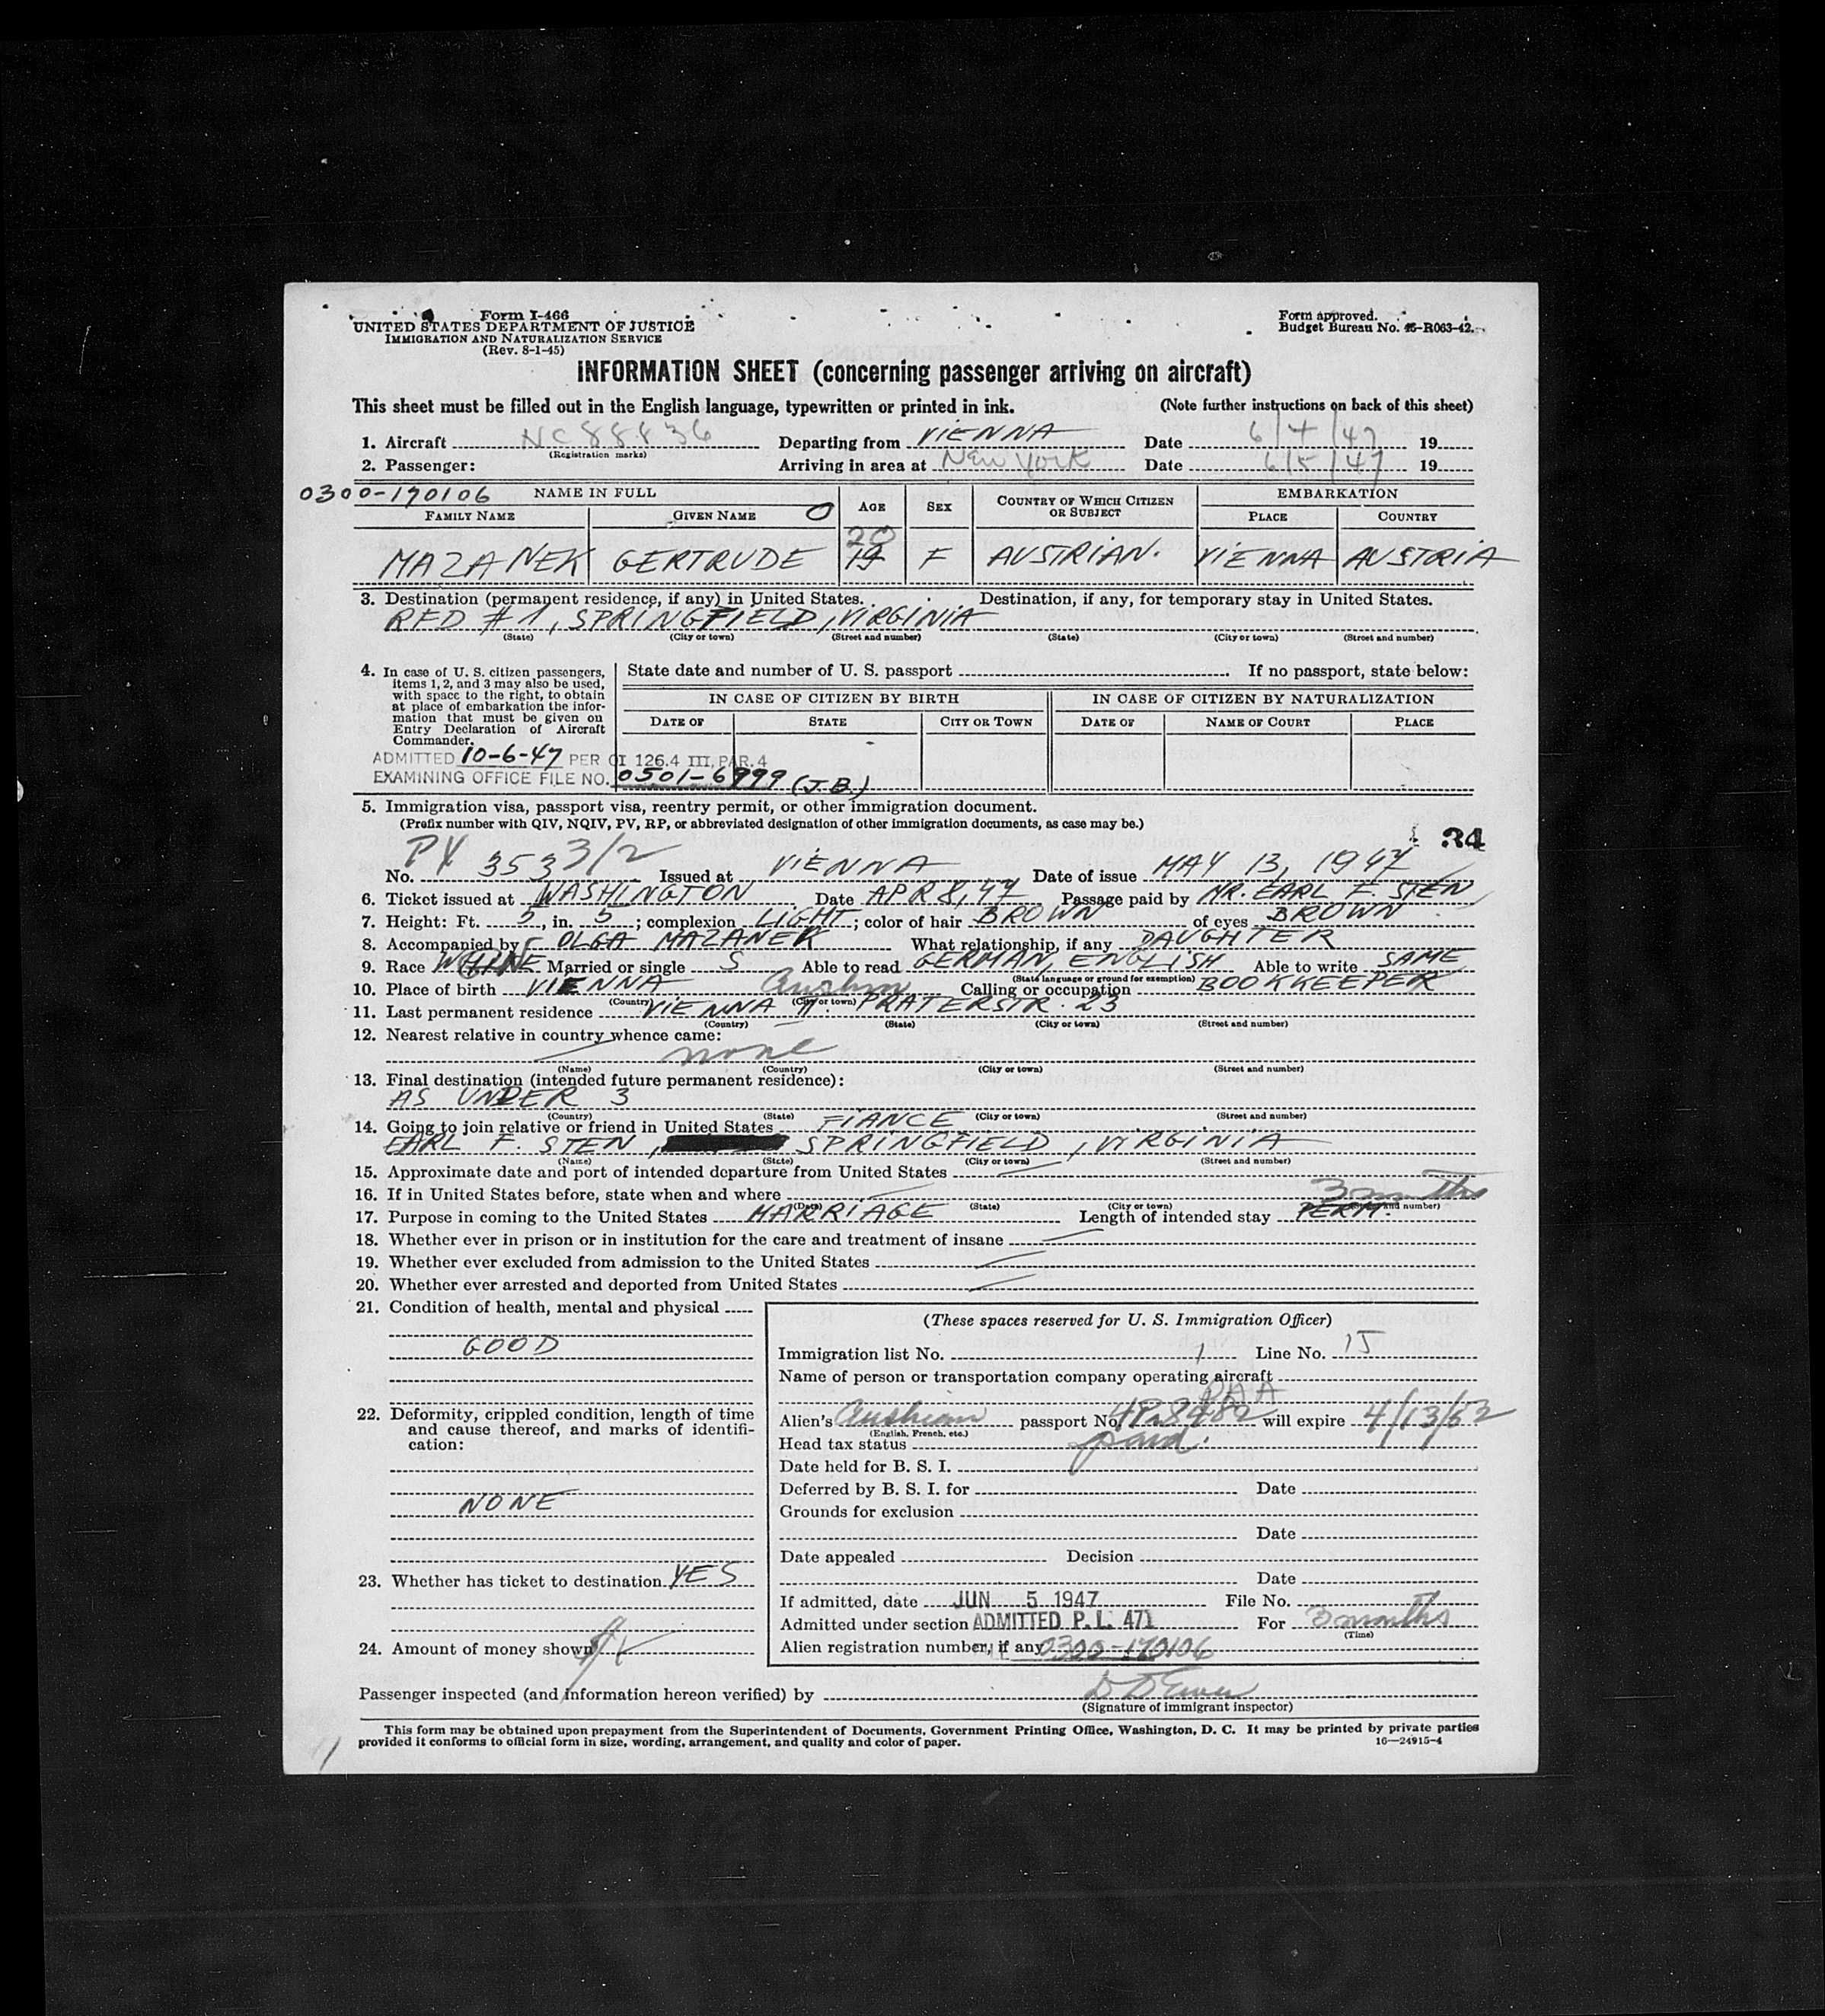 Form I-466
UNITED STATES DEPARTMENT OF JUSTICE
IMMIGRATION AND NATURALIZATION SERVICE
(Rev. 8-1-45)
Form approved.
Budget Bureau No. 45-R063-42.
INFORMATION SHEET (concerning passenger arriving on aircraft)
This sheet must be filled out in the English language, typewritten or printed in ink. (Note further instructions on back of this sheet)
1. Aircraft NC 88836 Departing from VIENNA Date 6/4/47 19
(Registration marks)
2. Passenger: Arriving in area at New York Date 6/5/47 19
0300-170106 NAME IN FULL AGE SEX COUNTRY OF WHICH CITIZEN OR SUBJECT EMBARKATION
FAMILY NAME GIVEN NAME O PLACE COUNTRY
20
MAZANEK GERTRUDE 19 F AUSTRIAN. VIENNA AUSTRIA
3. Destination (permanent residence, if any) in United States. Destination, if any, for temporary stay in United States.
RFD #1, SPRINGFIELD, VIRGINIA
(State) (City or town) (Street and number) (State) (City or town) (Street and number)
4. In case of U. S. citizen passengers, items 1, 2, and 3 may also be used, with space to the right, to obtain at place of embarkation the information that must be given on Entry Declaration of Aircraft Commander.
State date and number of U. S. passport If no passport, state below:
IN CASE OF CITIZEN BY BIRTH IN CASE OF CITIZEN BY NATURALIZATION
DATE OF STATE CITY OR TOWN DATE OF NAME OF COURT PLACE
ADMITTED 10-6-47 PER OI 126.4 III, PAR. 4
EXAMINING OFFICE FILE NO. 0501-6999 (J.B.)
5. Immigration visa, passport visa, reentry permit, or other immigration document.
(Prefix number with QIV, NQIV, PV, RP, or abbreviated designation of other immigration documents, as case may be.)
34
PV 3(2
No. 353 Issued at VIENNA Date of issue MAY 13, 1947
6. Ticket issued at WASHINGTON Date APR 8, 47 Passage paid by MR. EARL F. STEN
7. Height: Ft. 5, in. 5; complexion LIGHT; color of hair BROWN of eyes BROWN
8. Accompanied by OLGA MAZANEK What relationship, if any DAUGHTER
9. Race WHITE Married or single S Able to read GERMAN, ENGLISH Able to write SAME
(State language or ground for exemption)
10. Place of birth VIENNA Austria Calling or occupation BOOKKEEPER
(Country) (City or town)
11. Last permanent residence VIENNA II. PRATERSTR. 23
(Country) (State) (City or town) (Street and number)
12. Nearest relative in country whence came:
none
(Name) (Country) (City or town) (Street and number)
13. Final destination (intended future permanent residence):
AS UNDER 3
(Country) (State) (City or town) (Street and number)
14. Going to join relative or friend in United States FIANCE
EARL F. STEN, SPRINGFIELD, VIRGINIA
(Name) (State) (City or town) (Street and number)
15. Approximate date and port of intended departure from United States
16. If in United States before, state when and where
(Date) (State) (City or town) (Street and number)
3 months
17. Purpose in coming to the United States MARRIAGE Length of intended stay PERM.
18. Whether ever in prison or in institution for the care and treatment of insane
19. Whether ever excluded from admission to the United States
20. Whether ever arrested and deported from United States
21. Condition of health, mental and physical
GOOD
22. Deformity, crippled condition, length of time and cause thereof, and marks of identification:
NONE
23. Whether has ticket to destination YES
24. Amount of money shown
(These spaces reserved for U. S. Immigration Officer)
Immigration list No. 1 Line No. 15
Name of person or transportation company operating aircraft
PAA
Alien's Austrian passport No. will expire 4/13/52
(English, French, etc.)
Head tax status paid.
Date held for B. S. I.
Deferred by B. S. I. for Date
Grounds for exclusion
Date
Date appealed Decision
Date
If admitted, date JUN 5 1947 File No.
Admitted under section ADMITTED P. L. 471 For 3 months
(Time)
Alien registration number, if any 0300-170106
Passenger inspected (and information hereon verified) by
(Signature of immigrant inspector)
This form may be obtained upon prepayment from the Superintendent of Documents, Government Printing Office, Washington, D. C. It may be printed by private parties
provided it conforms to official form in size, wording, arrangement, and quality and color of paper. 16—24915-4